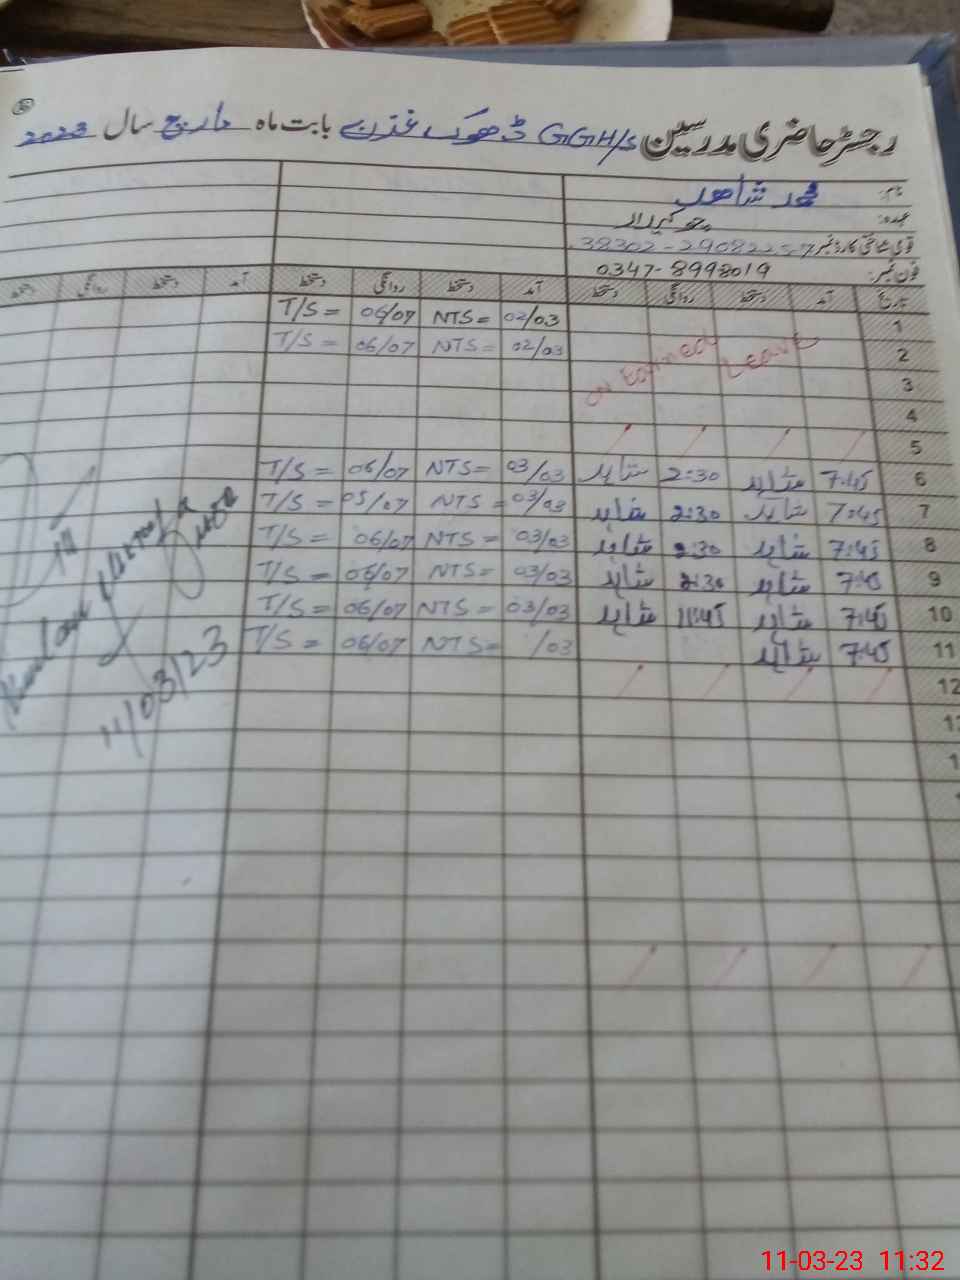 رجسٹر حاضری مدرسین GGH/S ڈھوک غذن بابت ماہ مارچ سال 2023
نام: محمد شاھد
عہدہ: چوکیدار
قومی شناختی کارڈ نمبر 38302-2908225-7
فون نمبر: 0347-8998019
تاریخ آمد دستخط روانگی دستخط آمد دستخط روانگی دستخط آمد دستخط روانگی دستخط
1 02/03 NTS= 06/07 T/S=
2 02/03 NTS= 06/07 T/S=
on Earned Leave
3
4
5
6 7:45 شاہد 2:30 شاہد 03/03 NTS= 06/07 T/S=
7 7:45 شاہد 2:30 شاہد 03/03 NTS= 05/07 T/S=
8 7:45 شاہد 2:30 شاہد 03/03 NTS= 06/07 T/S=
9 7:45 شاہد 2:30 شاہد 03/03 NTS= 06/07 T/S=
10 7:45 شاہد 11:45 شاہد 03/03 NTS= 06/07 T/S=
11 7:45 شاہد /03 NTS= 06/07 T/S=
12
11/03/23
11-03-23 11:32